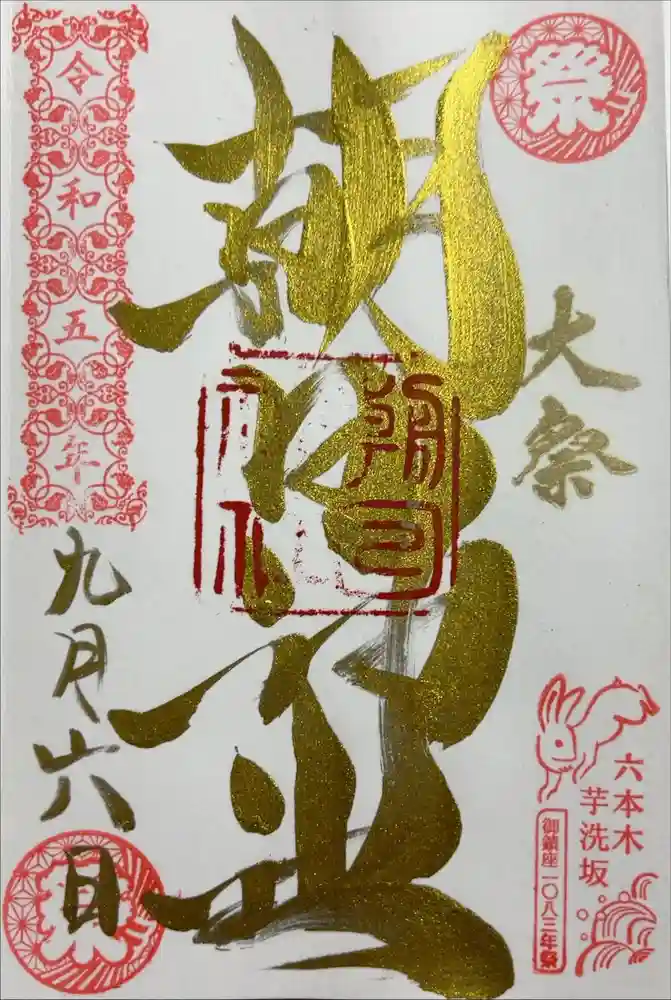 祭
大祭
六本木
芋洗坂
御鎮座一〇八三年祭
朝日神社
朝日
神社
令和五年
九月六日
祭